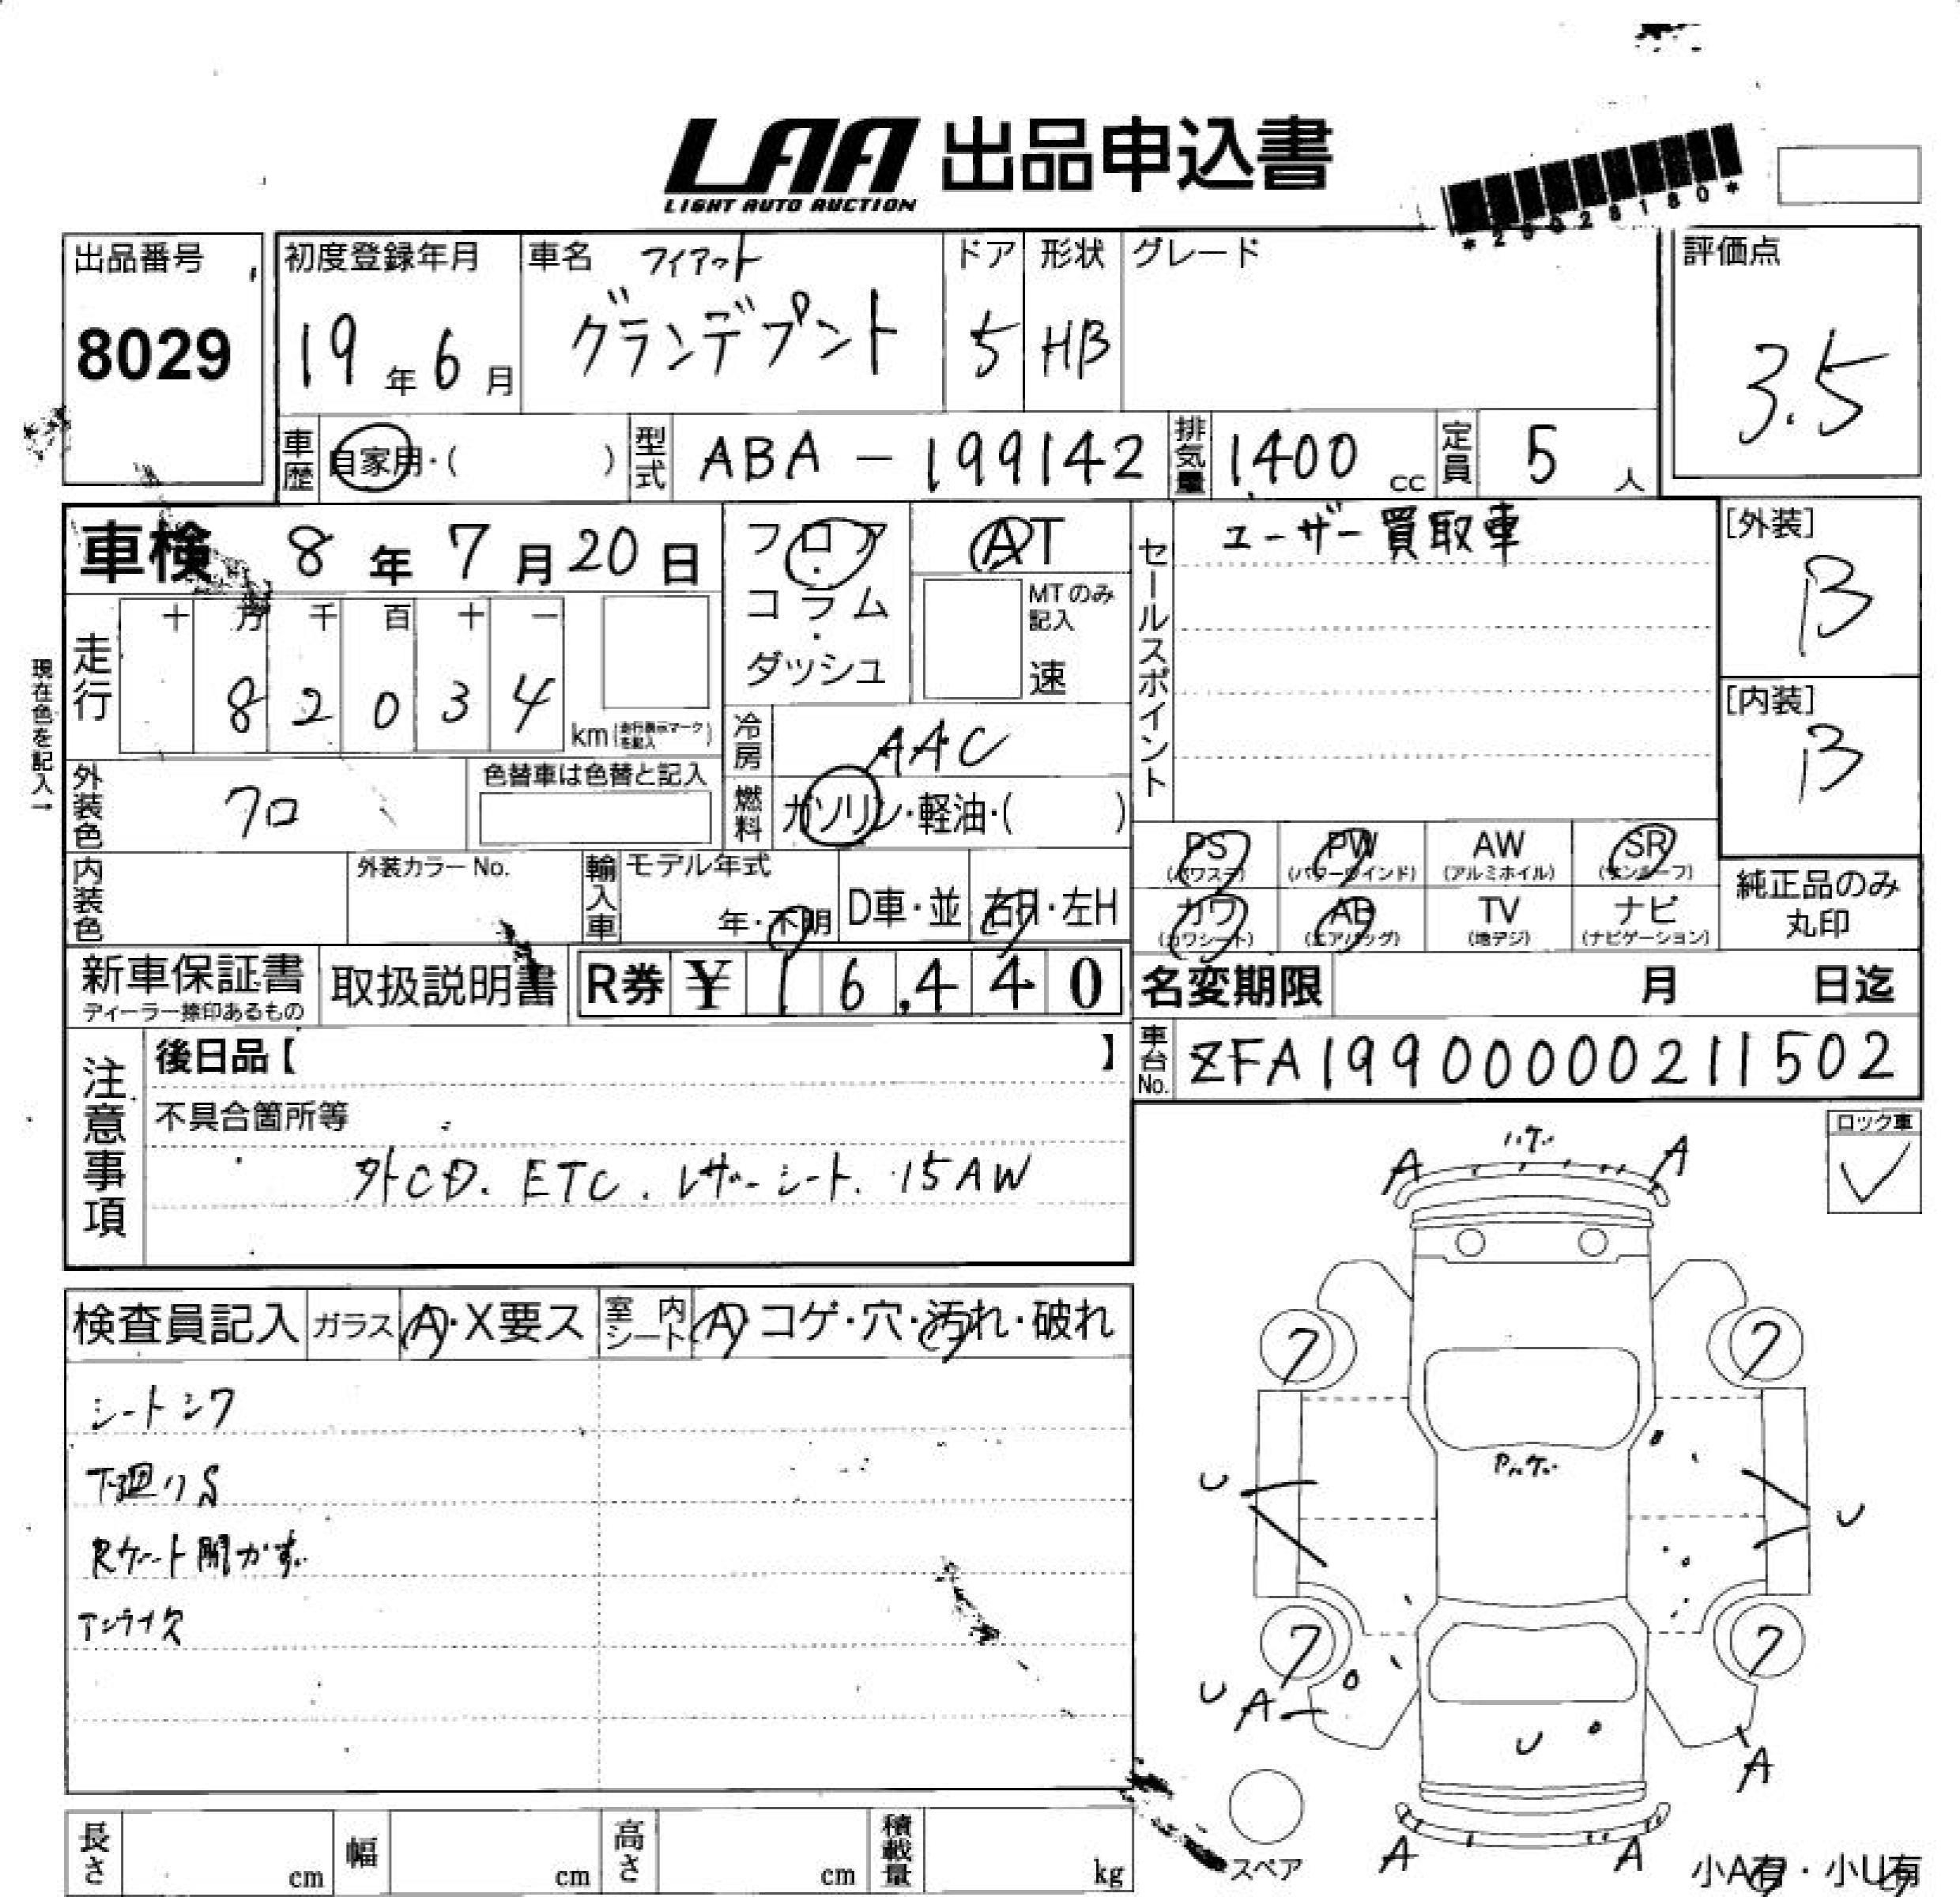 LAA 出品申込書
LIGHT AUTO AUCTION
出品番号
8029
初度登録年月
19年6月
車名 フィアット
グランデプント
ドア
5
形状
HB
グレード
評価点
3.5
車歴 自家用・( )
型式 ABA-199142
排気量 1400 cc
定員 5人
車検 8年7月20日
フロア・コラム・ダッシュ
AT
MTのみ記入
速
セールスポイント
ユーザー買取車
[外装]
B
[内装]
B
現在色を記入→
走行
十 万 千 百 十 一
8 2 0 3 4
km(走行表示マークを記入)
冷房 AAC
燃料 ガソリン・軽油・( )
外装色 クロ
色替車は色替と記入
内装色
外装カラーNo.
輸入車
モデル年式
年・不明
D車・並
右H・左H
PS (パワステ)
PW (パワーウインド)
AW (アルミホイル)
SR (サンルーフ)
カワ (カワシート)
AB (エアバッグ)
TV (地デジ)
ナビ (ナビゲーション)
純正品のみ
丸印
新車保証書
ディーラー捺印あるもの
取扱説明書
R券 ¥16,440
名変期限 月 日迄
車台No. ZFA19900000211502
注意事項
後日品【 】
不具合箇所等
外CD. ETC. レザーシート. 15AW
ロック車
検査員記入
ガラス A・X要ス
室内シート A コゲ・穴・汚れ・破れ
シートシワ
下廻りS
Rゲート開かず
アンテナ欠
ハゲ
A A
ヤハゲ
U
U
U A
U
A
A A
スペア
小A有・小U有
長さ cm
幅 cm
高さ cm
積載量 kg